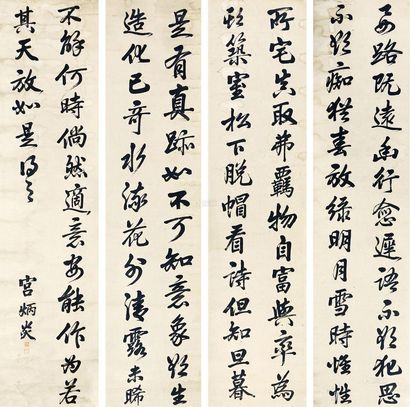 要路既遠幽行愈遲語不欲犯思
不欲痴猶春於綠明月雪時惟性
所宅真取弗羈物自富與率為
期築室松下脫帽看詩但知旦暮
是有真跡如不可知意象欲生
造化已奇水流花開清露未晞
不辨何時倘然適意安能作為若
其天放如是得之
宮炳炎